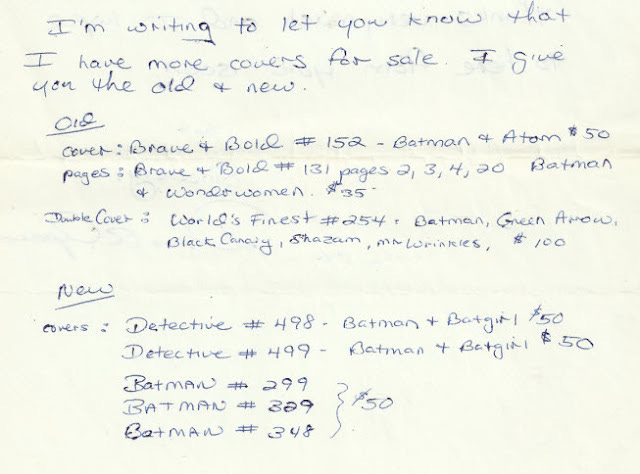 I'm writing to let you know that
I have more covers for sale. I give
you the old & new.
Old
cover: Brave & Bold # 152 - Batman & Atom $50
pages: Brave & Bold # 131 pages 2, 3, 4, 20 Batman
& Wonderwomen. $35
Double Cover: World's Finest #254 - Batman, Green Arrow,
Black Canary, Shazam, mr Wrinkles, $100
New
covers: Detective # 498 - Batman & Batgirl $50
Detective # 499 - Batman & Batgirl $50
BATMAN # 299
BATMAN # 329 } $50
BATMAN # 348